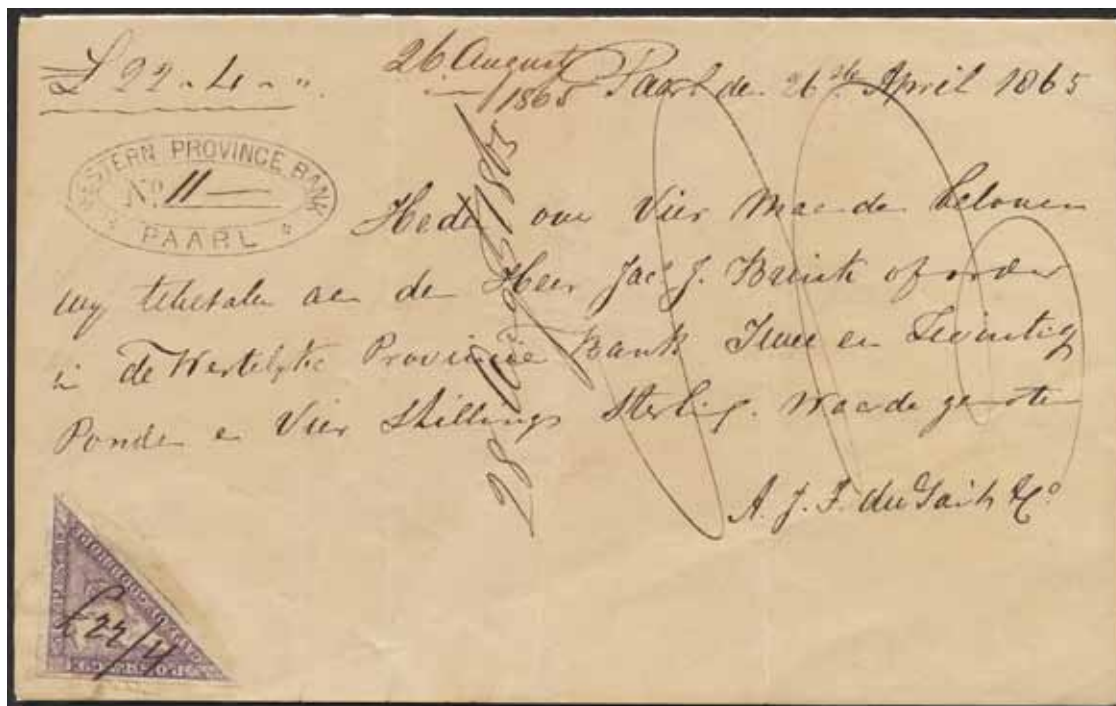 £ 22 - 4 - "
26 August
1865
Paarl de 26ste April 1865
WESTERN PROVINCE BANK
No. 11
PAARL
Heden over Vier Maande beloven
wy te betalen aan de Heer Jac. J. of order
in de Westelyke Provincie Bank Twee en Twintig
Ponden en Vier Shillings Sterling. Waarde genoten
A. J. F. du Toit & Co
28 1865
£22/4